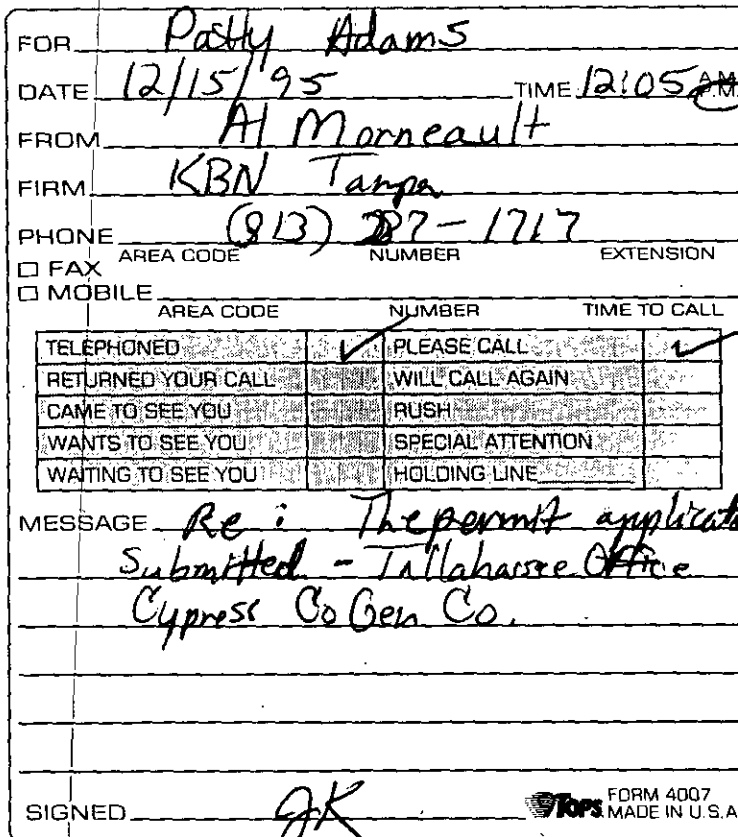 FOR Patty Adams
DATE 12/15/95 TIME 12:05 A.M. P.M.
FROM Al Morneault
FIRM KBN Tampa
PHONE (813) 287-1717
AREA CODE NUMBER EXTENSION
□ FAX
□ MOBILE
AREA CODE NUMBER TIME TO CALL
TELEPHONED ✓ PLEASE CALL ✓
RETURNED YOUR CALL WILL CALL AGAIN
CAME TO SEE YOU RUSH
WANTS TO SEE YOU SPECIAL ATTENTION
WAITING TO SEE YOU HOLDING LINE
MESSAGE Re: The permit applicat
Submitted - Tallahassee Office
Cypress CoGen Co.
SIGNED JK
TOPS FORM 4007
MADE IN U.S.A